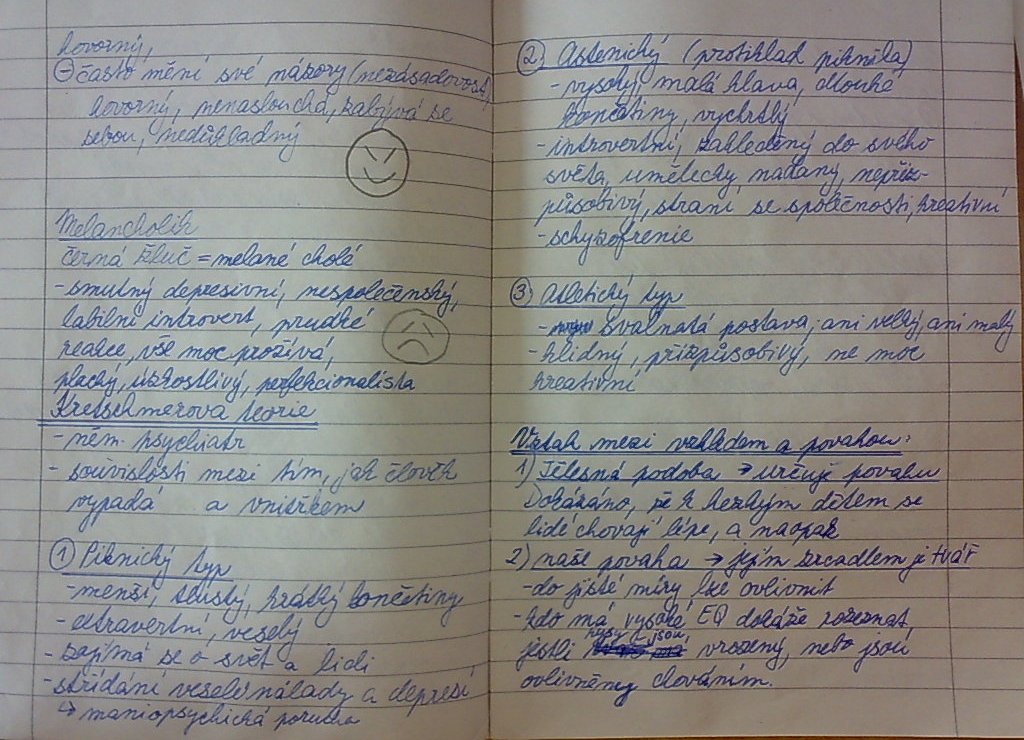 hovorný,
⊖ často mění své názory (nezásadovost),
hovorný, nenaslouchá, zabývá se
sebou, nedůkladný
Melancholik
černá žluč = melané cholé
- smutný depresivní, nespolečenský,
labilní introvert, prudké
reakce, vše moc prožívá,
plachý, úzkostlivý, perfekcionalista
Kretschmerova teorie
- něm. psychiatr
- souvislosti mezi tím, jak člověk
vypadá a vnitřkem
① Piknický typ
- menší, tlustý, krátký končetiny
- extravertní, veselý
- zajímá se o svět a lidi
- střídání veselé nálady a depresí
↳ maniopsychická porucha
② Astenický (protiklad piknika)
- vysoký, malá hlava, dlouhé
končetiny, vychrtlý
- introvertní, zahleděný do svého
světa, umělecky nadaný, nepřiz-
působivý, straní se společnosti, kreativní
- schyzofrenie
③ Atletický typ
- svalnatá postava, ani velký, ani malý
- klidný, přizpůsobivý, ne moc
kreativní
Vztah mezi vzhledem a povahou:
1) Tělesná podoba → určuje povahu
Dokázáno, že k hezkým dětem se
lidé chovají lépe, a naopak
2) naše povaha → jejím zrcadlem je tvář
- do jisté míry lze ovlivnit
- kdo má vysoké EQ dokáže rozeznat,
jestli rysy jsou vrozený, nebo jsou
ovlivněny chováním.